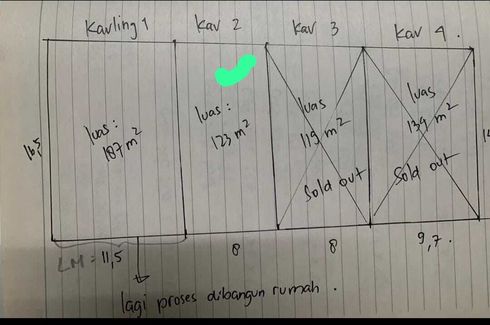 Kavling 1
Kav 2
Kav 3
Kav 4.
luas:
187 m²
luas:
123 m²
luas
119 m²
Sold out
luas
139 m²
Sold out
16,5
LM = 11,5
8
8
9,7.
lagi proses dibangun rumah.